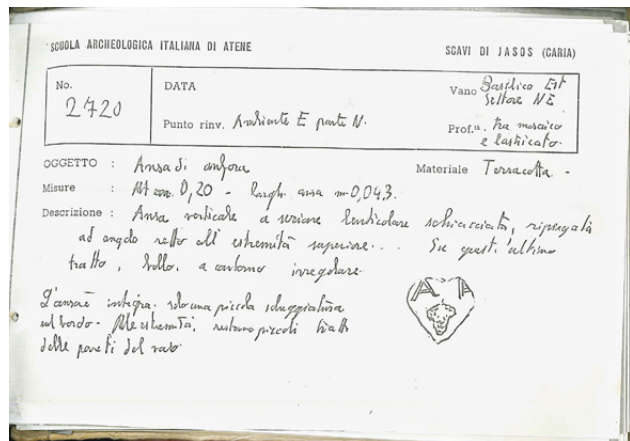 SCUOLA ARCHEOLOGICA ITALIANA DI ATENE
SCAVI DI JASOS (CARIA)
No. 2720
DATA
Vano Basilica Est
Settore NE
Punto rinv. Ambiente E parte N.
Prof.tà tra mosaico
e lastricato.
OGGETTO : Ansa di anfora
Materiale Terracotta -
Misure : Alt cons. 0,20 - Largh. ansa m 0,043.
Descrizione : Ansa verticale a sezione lenticolare schiacciata, ripiegata
ad angolo retto all'estremità superiore... Su quest'ultimo
tratto, bollo, a contorno irregolare
L'ansa è integra. solo una piccola scheggiatura
sul bordo. Alle estremità, restano piccoli tratti
delle pareti del vaso
A A